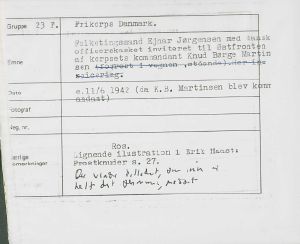 Gruppe 23 F. Frikorps Danmark.
Folketingsmand Ejnar Jørgensen med dansk
officerskasket inviteret til Østfronten
Emne af korpsets kommandant Knud Børge Martin
sen (forrest i vognen, stående). Her in
spicering.
Dato e.11/6 1942 (da K.B. Martinsen blev kom
mandant)
Fotograf
Neg. nr.
Ros.
Lignende ilustration i Erik Haast:
Frostknuder s. 27.
Der